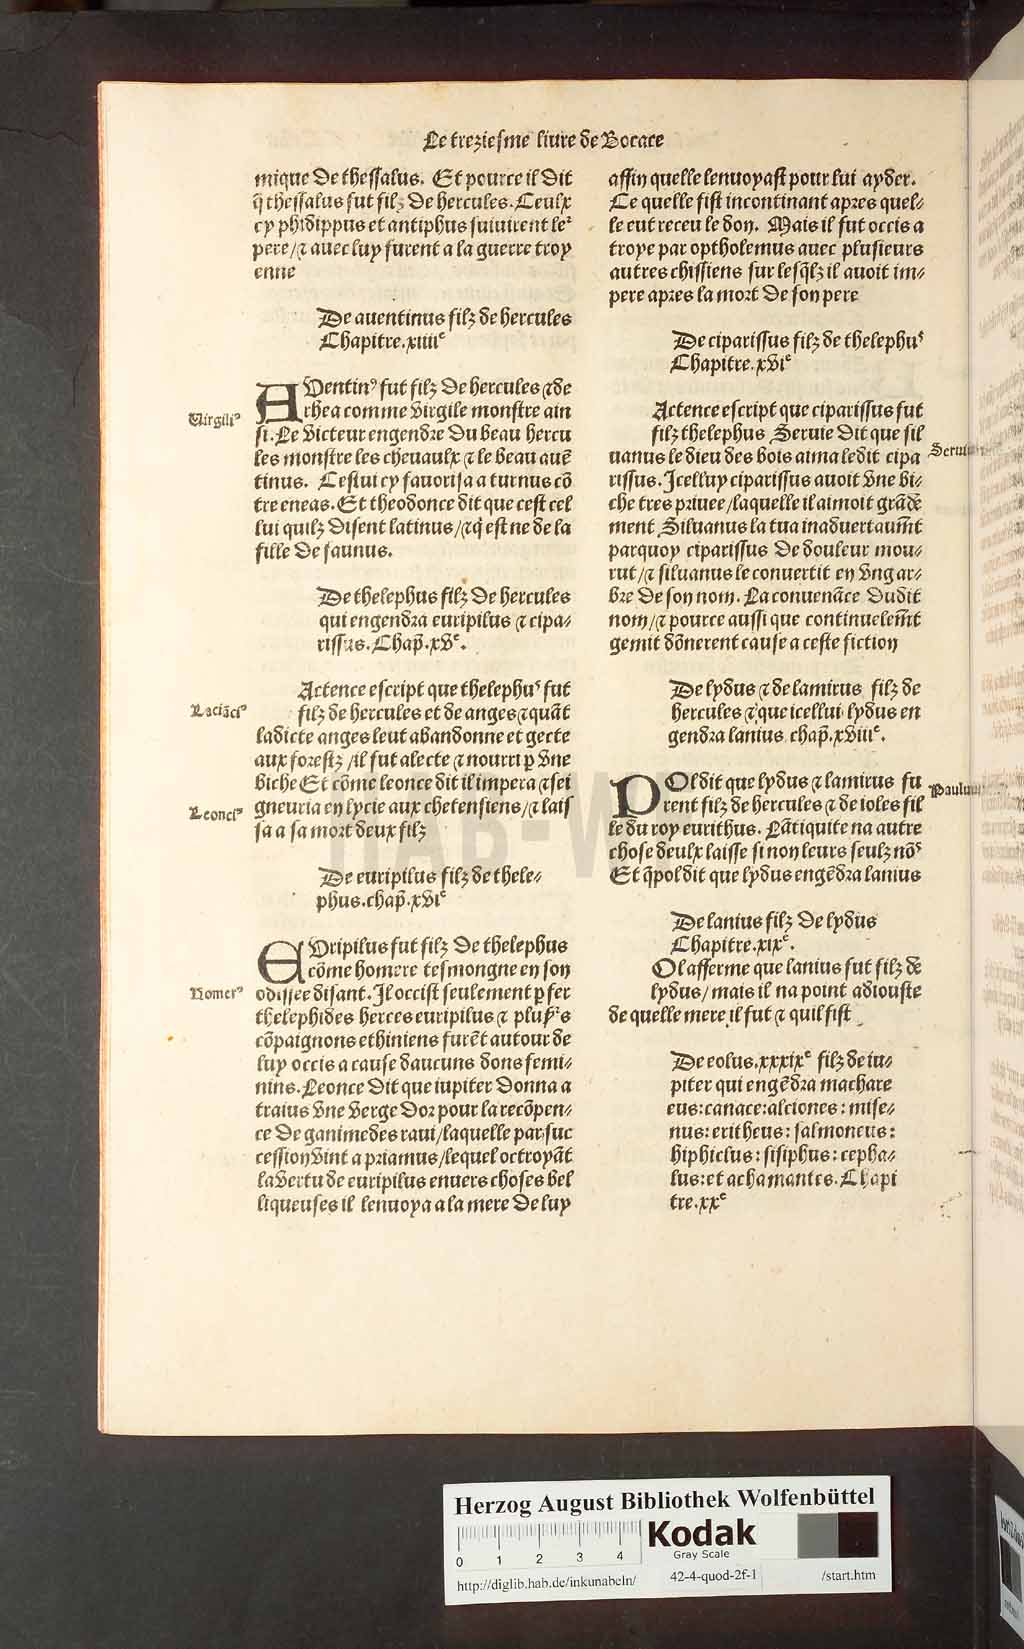 Le treziesme liure de Bocace
mique de thessalus. Et pource il dit
q̄ thessalus fut filz de hercules. Ceulx
cy phidippus et antiphus suiuirent le²
pere/⁊ auec luy furent a la guerre troy
enne
De auentinus filz de hercules
Chapitre.xiiiiᵉ
AVentinꝰ fut filz de hercules ⁊ de
rhea comme virgile monstre ain
si. Le victeur engendre du beau hercu
les monstre les cheuaulx ⁊ le beau auē
tinus. Cestui cy fauorisa a turnus cō
tre eneas. Et theodonce dit que cest cel
lui quilz disent latinus/⁊ q̄ est ne de la
fille de faunus.
Virgiliꝰ
De thelephus filz de hercules
qui engendra euripilus ⁊ cipa⸗
rissus. Chap̄.xvᵉ.
Actence escript que thelephuˢ fut
filz de hercules et de anges ⁊ quāt
ladicte anges leut abandonne et gecte
aux forestz/il fut alecte ⁊ nourri p̱ vne
biche Et cōme leonce dit il impera ⁊ sei
gneuria en lycie aux chetensiens/⁊ lais
sa a sa mort deux filz
Laciācꝰ
Leoncꝰ
De euripilus filz de thele⸗
phus.chap̄.xviᵉ
EVripilus fut filz de thelephus
cōme homere tesmongne en son
odissee disant. Il occist seulement p̱ fer
thelephides herces euripilus ⁊ plusʳs
cōpaignons ethiniens furēt autour de
luy occis a cause daucuns dons femi⸗
nins. Leonce dit que iupiter donna a
traius vne verge dor pour la recōpen⸗
ce de ganimedes raui/laquelle par suc
cession vint a priamus/lequel octroyāt
la vertu de euripilus enuers choses bel
liqueuses il lenuoya a la mere de luy
Homerꝰ
affin quelle lenuoyast pour lui ayder.
Ce quelle fist incontinant apres quel⸗
le eut receu le don. Mais il fut occis a
troye par optholemus auec plusieurs
autres chissiens sur lesq̄lz il auoit im⸗
pere apres la mort de son pere
De ciparissus filz de thelephuˢ
Chapitre.xviᵉ
Actence escript que ciparissus fut
filz thelephus Seruie dit que sil
uanus le dieu des bois aima ledit cipa
rissus. Icelluy ciparissus auoit vne bi⸗
che tres priuee/laquelle il aimoit grādē
ment Siluanus la tua inaduertaum̄t
parquoy ciparissus de douleur mou⸗
rut/⁊ siluanus le conuertit en vng ar⸗
bre de son nom. La conuenāce dudit
nom/⁊ pource aussi que continuelem̄t
gemit dōnerent cause a ceste fiction
De lydus ⁊ de lamirus filz de
hercules ⁊ que icellui lydus en
gendra lanius chap̄.xviiiᵉ.
POl dit que lydus ⁊ lamirus fu
rent filz de hercules ⁊ de ioles fil
le du roy eurithus. Lātiquite na autre
chose deulx laisse si non leurs seulz nōˢ
Et q̄ pol dit que lydus engēdra lanius
De lanius filz de lydus
Chapitre.xixᵉ.
Ol afferme que lanius fut filz de
lydus/mais il na point adiouste
de quelle mere il fut ⁊ quil fist
De eolus.xxxixᵉ filz de iu⸗
piter qui engēdra machare
eus:canace:alciones:mise⸗
nus:eritheus:salmoneus:
hiphiclus:sisiphus:cepha⸗
lus:et achamantes.Chapi
tre.xxᵉ
Herzog August Bibliothek Wolfenbüttel
Kodak
Gray Scale
0 1 2 3 4
http://diglib.hab.de/inkunabeln/ 42-4-quod-2f-1 /start.htm